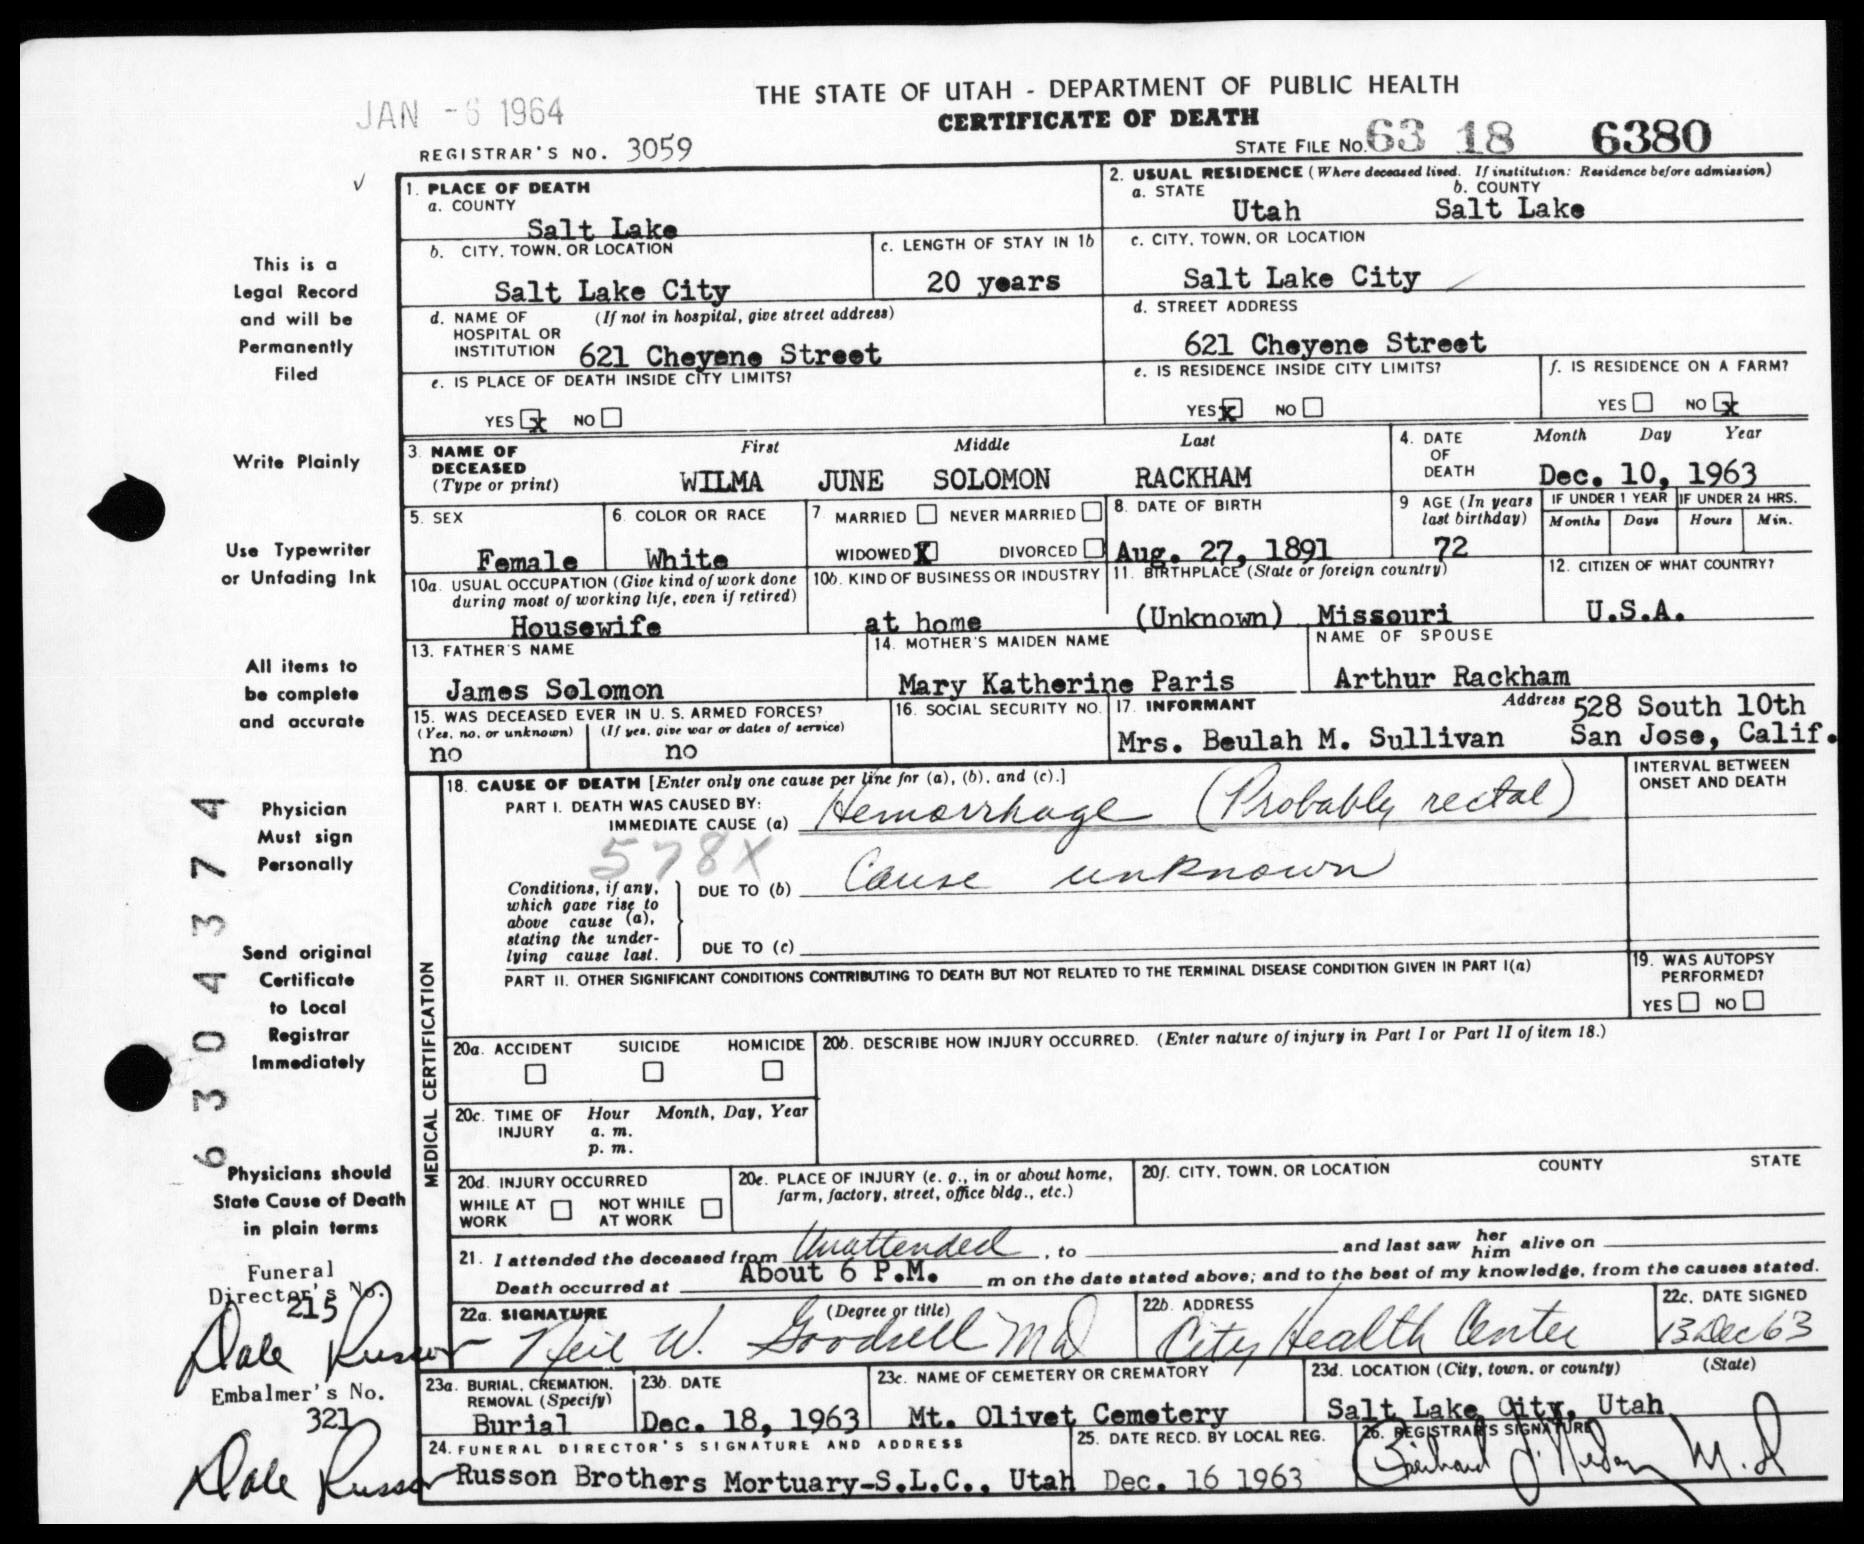 THE STATE OF UTAH - DEPARTMENT OF PUBLIC HEALTH
CERTIFICATE OF DEATH
JAN -6 1964
REGISTRAR'S NO. 3059
STATE FILE NO. 63 18 6380
1. PLACE OF DEATH
a. COUNTY
Salt Lake
2. USUAL RESIDENCE (Where deceased lived. If institution: Residence before admission)
a. STATE
b. COUNTY
Utah Salt Lake
b. CITY, TOWN, OR LOCATION
Salt Lake City
c. LENGTH OF STAY IN 1b
20 years
c. CITY, TOWN, OR LOCATION
Salt Lake City
d. NAME OF HOSPITAL OR INSTITUTION
(If not in hospital, give street address)
621 Cheyene Street
d. STREET ADDRESS
621 Cheyene Street
e. IS PLACE OF DEATH INSIDE CITY LIMITS?
YES x NO
e. IS RESIDENCE INSIDE CITY LIMITS?
YES x NO
f. IS RESIDENCE ON A FARM?
YES NO x
3. NAME OF DECEASED
(Type or print)
First Middle Last
WILMA JUNE SOLOMON RACKHAM
4. DATE OF DEATH
Month Day Year
Dec. 10, 1963
5. SEX
Female
6. COLOR OR RACE
White
7. MARRIED NEVER MARRIED
WIDOWED X DIVORCED
8. DATE OF BIRTH
Aug. 27, 1891
9 AGE (In years last birthday)
72
IF UNDER 1 YEAR
Months Days
IF UNDER 24 HRS.
Hours Min.
10a. USUAL OCCUPATION (Give kind of work done during most of working life, even if retired)
Housewife
10b. KIND OF BUSINESS OR INDUSTRY
at home
11. BIRTHPLACE (State or foreign country)
(Unknown) Missouri
12. CITIZEN OF WHAT COUNTRY?
U.S.A.
13. FATHER'S NAME
James Solomon
14. MOTHER'S MAIDEN NAME
Mary Katherine Paris
NAME OF SPOUSE
Arthur Rackham
15. WAS DECEASED EVER IN U.S. ARMED FORCES?
(Yes, no, or unknown) (If yes, give war or dates of service)
no no
16. SOCIAL SECURITY NO.
17. INFORMANT
Mrs. Beulah M. Sullivan
Address 528 South 10th
San Jose, Calif.
MEDICAL CERTIFICATION
18. CAUSE OF DEATH [Enter only one cause per line for (a), (b), and (c).]
PART I. DEATH WAS CAUSED BY:
IMMEDIATE CAUSE (a) Hemorrhage (Probably rectal)
578X
Conditions, if any, which gave rise to above cause (a), stating the underlying cause last.
DUE TO (b) Cause unknown
DUE TO (c)
INTERVAL BETWEEN ONSET AND DEATH
PART II. OTHER SIGNIFICANT CONDITIONS CONTRIBUTING TO DEATH BUT NOT RELATED TO THE TERMINAL DISEASE CONDITION GIVEN IN PART I(a)
19. WAS AUTOPSY PERFORMED?
YES NO
20a. ACCIDENT SUICIDE HOMICIDE
20b. DESCRIBE HOW INJURY OCCURRED. (Enter nature of injury in Part I or Part II of item 18.)
20c. TIME OF INJURY
Hour Month, Day, Year
a. m.
p. m.
20d. INJURY OCCURRED
WHILE AT WORK NOT WHILE AT WORK
20e. PLACE OF INJURY (e. g., in or about home, farm, factory, street, office bldg., etc.)
20f. CITY, TOWN, OR LOCATION COUNTY STATE
21. I attended the deceased from Unattended, to and last saw her him alive on
Death occurred at About 6 P.M. m on the date stated above; and to the best of my knowledge, from the causes stated.
22a. SIGNATURE (Degree or title)
Neil W. Goodsell MD
22b. ADDRESS
City Health Center
22c. DATE SIGNED
13 Dec 63
23a. BURIAL, CREMATION, REMOVAL (Specify)
Burial
23b. DATE
Dec. 18, 1963
23c. NAME OF CEMETERY OR CREMATORY
Mt. Olivet Cemetery
23d. LOCATION (City, town, or county) (State)
Salt Lake City, Utah
24. FUNERAL DIRECTOR'S SIGNATURE AND ADDRESS
Russon Brothers Mortuary-S.L.C., Utah
25. DATE RECD. BY LOCAL REG.
Dec. 16 1963
26. REGISTRAR'S SIGNATURE
M.D
This is a
Legal Record
and will be
Permanently
Filed
Write Plainly
Use Typewriter
or Unfading Ink
All items to
be complete
and accurate
Physician
Must sign
Personally
Send original
Certificate
to Local
Registrar
Immediately
Physicians should
State Cause of Death
in plain terms
Funeral
Director's No.
215
Dale Russon
Embalmer's No.
321
Dale Russon
6304374